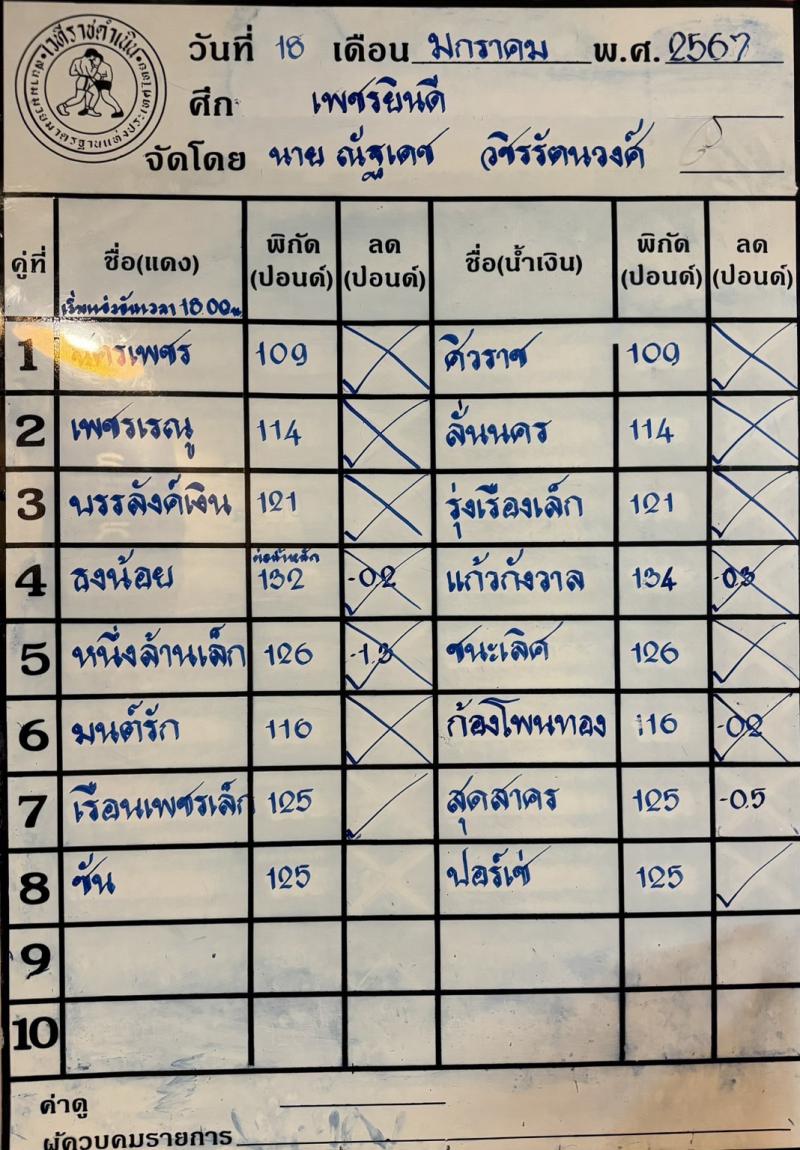 เวทีราชดำเนิน
สนามมวยมาตรฐานแห่งประเทศไทย
วันที่ 18 เดือน มกราคม พ.ศ. 2567
ศึก เพชรยินดี
จัดโดย นาย ณัฐเดช วชิรรัตนวงศ์
คู่ที่ ชื่อ(แดง) พิกัด (ปอนด์) ลด (ปอนด์) ชื่อ(น้ำเงิน) พิกัด (ปอนด์) ลด (ปอนด์)
เริ่มแข่งขันเวลา 18.00 น.
1 เพชร 109 ศิวราช 109
2 เพชรเรณู 114 ลั่นนคร 114
3 บรรลังค์เงิน 121 รุ่งเรืองเล็ก 121
4 ธงน้อย ต่อน้ำหนัก 132 -0.2 แก้วกังวาล 134 -0.3
5 หนึ่งล้านเล็ก 126 -1.3 ชนะเลิศ 126
6 มนต์รัก 116 ก้องโพนทอง 116 -0.2
7 เรือนเพชรเล็ก 125 สุดสาคร 125 -0.5
8 ซัน 125 ปอร์เช่ 125
9
10
ค่าดู
ผู้ควบคุมรายการ